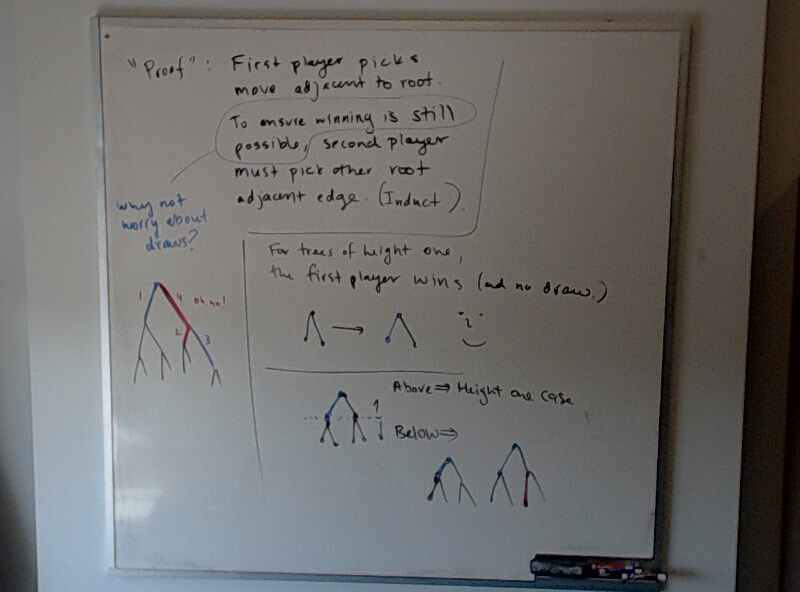 "Proof": First player picks
move adjacent to root.
To ensure winning is still
possible, second player
must pick other root
adjacent edge. (Induct).
why not
worry about
draws?
1 4 oh no!
2 3
For trees of height one,
the first player wins (and no draw.)
Above ⇒ Height one case
1
Below ⇒